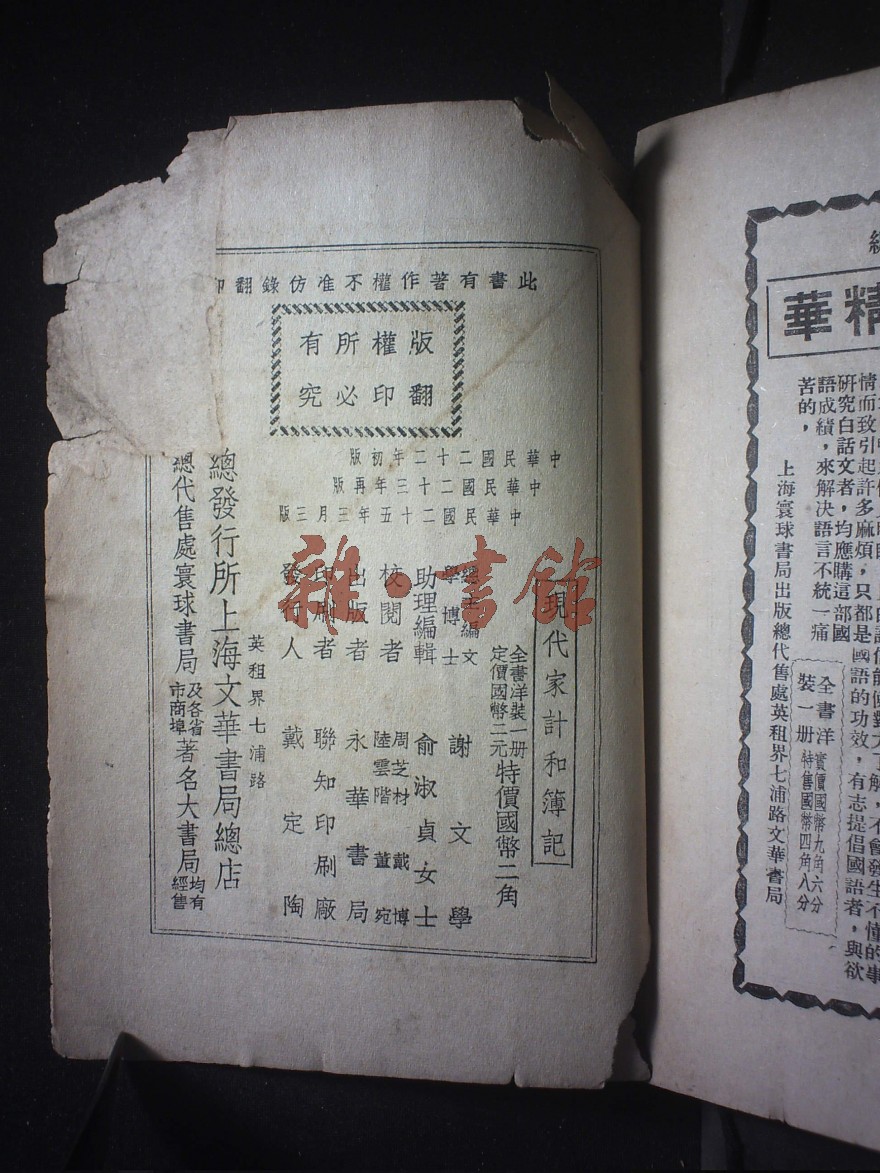 此書有著作權不准仿錄翻印
版權所有
翻印必究
中華民國二十二年初版
中華民國二十三年再版
中華民國二十五年三月三版
現代家計和簿記
全書洋裝一册
定價國幣二元
特價國幣二角
總主編文
學博士
謝文學
助理編輯
俞淑貞女士
校閱者
周芝材 戴博
陸雲階 董宛
出版者 永華書局
印刷者 聯知印刷廠
發行人 戴定陶
英租界七浦路
總發行所上海文華書局總店
總代售處寰球書局
及各省
市商埠
著名大書局
均有
經售
雜·書館
精華
情而致引起許多麻煩，只都是國語的功效，有志提倡國語者，與欲
研究白話文者，均應購這部國
語成績，來解决語言不統一痛
苦的，
全書洋
裝一册
實價國幣九角六分
特售國幣四角八分
上海寰球書局出版總代售處英租界七浦路文華書局